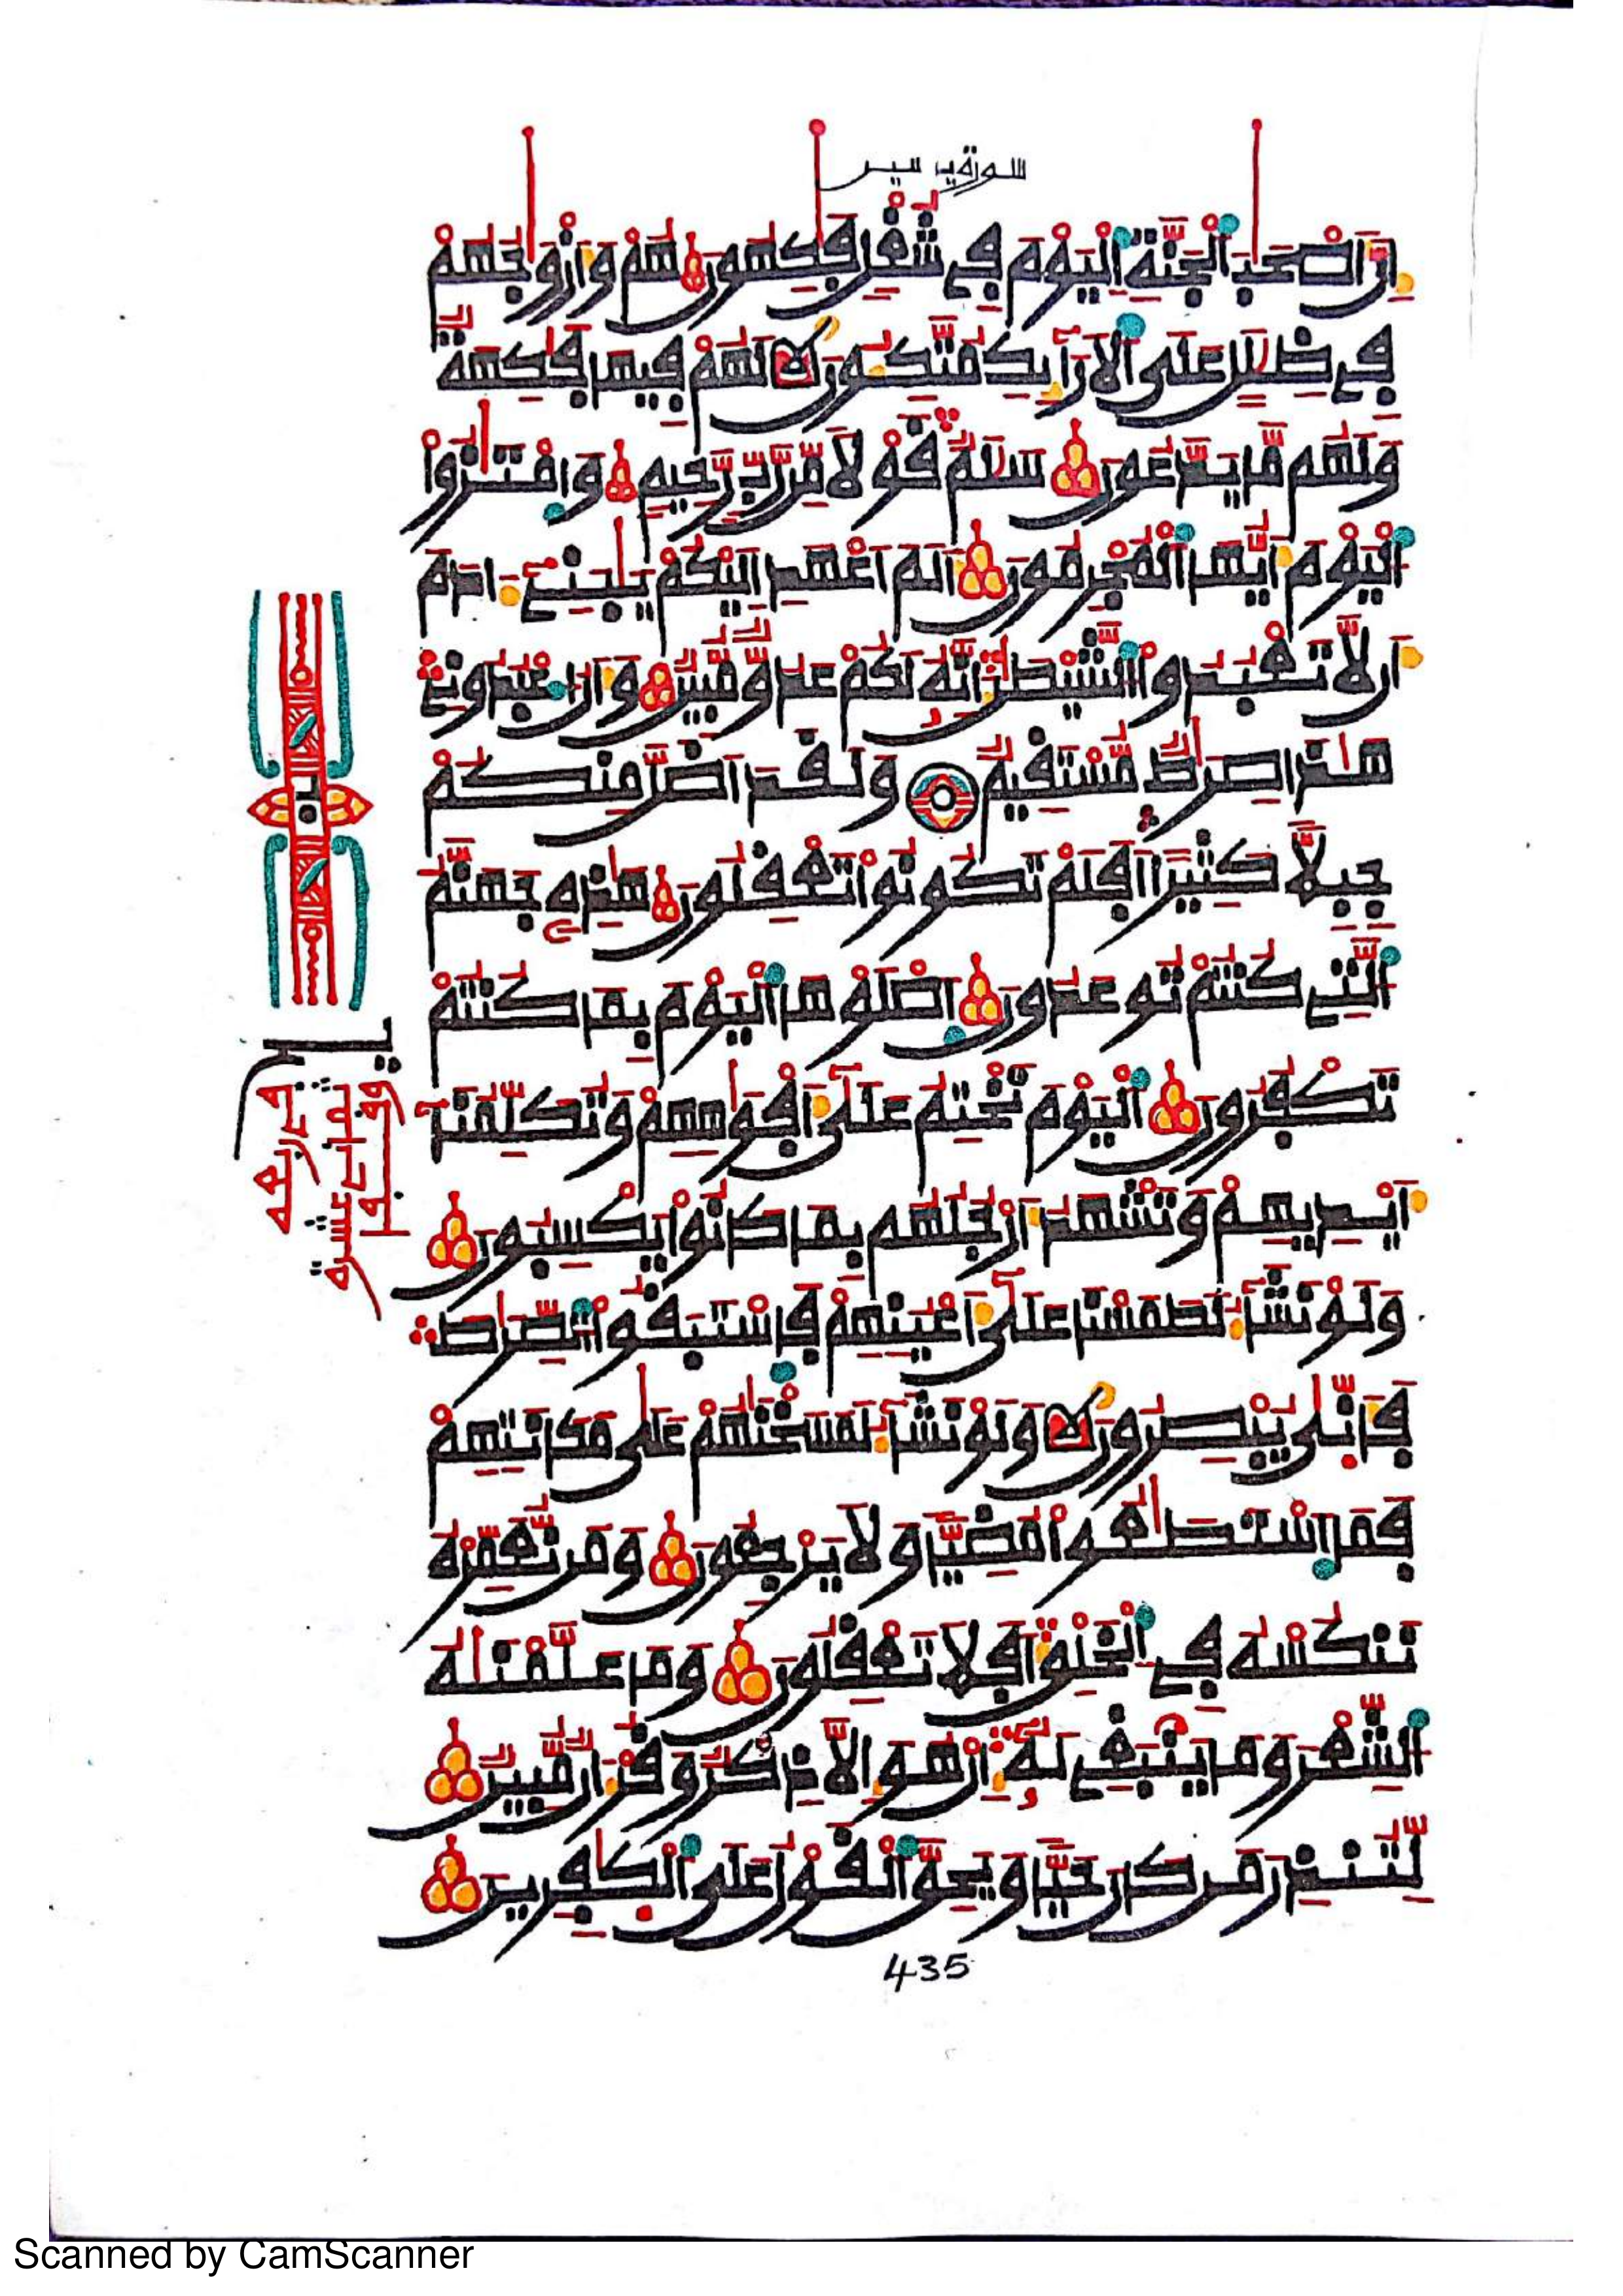 سورة يس
إن أصحب الجنة اليوم في شغل فكهون هم وأزوجهم
في ظلل على الأرائك متكئون لهم فيها فكهة
ولهم ما يدعون سلم قولا من رب رحيم وامتزوا
اليوم أيها المجرمون ألم أعهد إليكم يبني ءادم
أن لا تعبدوا الشيطن إنه لكم عدو مبين وأن اعبدوني
هذا صرط مستقيم ولقد أضل منكم
جبلا كثيرا أفلم تكونوا تعقلون هذه جهنم
التي كنتم توعدون اصلوها اليوم بما كنتم
تكفرون اليوم نختم على أفوههم وتكلمنا
أيديهم وتشهد أرجلهم بما كانوا يكسبون
ولو نشاء لطمسنا على أعينهم فاستبقوا الصرط
فأنى يبصرون ولو نشاء لمسخنهم على مكانتهم
فما استطعوا مضيا ولا يرجعون ومن نعمره
ننكسه في الخلق أفلا تعقلون وما علمنه
الشعر وما ينبغي له إن هو إلا ذكر وقرءان مبين
لتنذر من كان حيا ويحق القول على الكفرين
435
Scanned by CamScanner